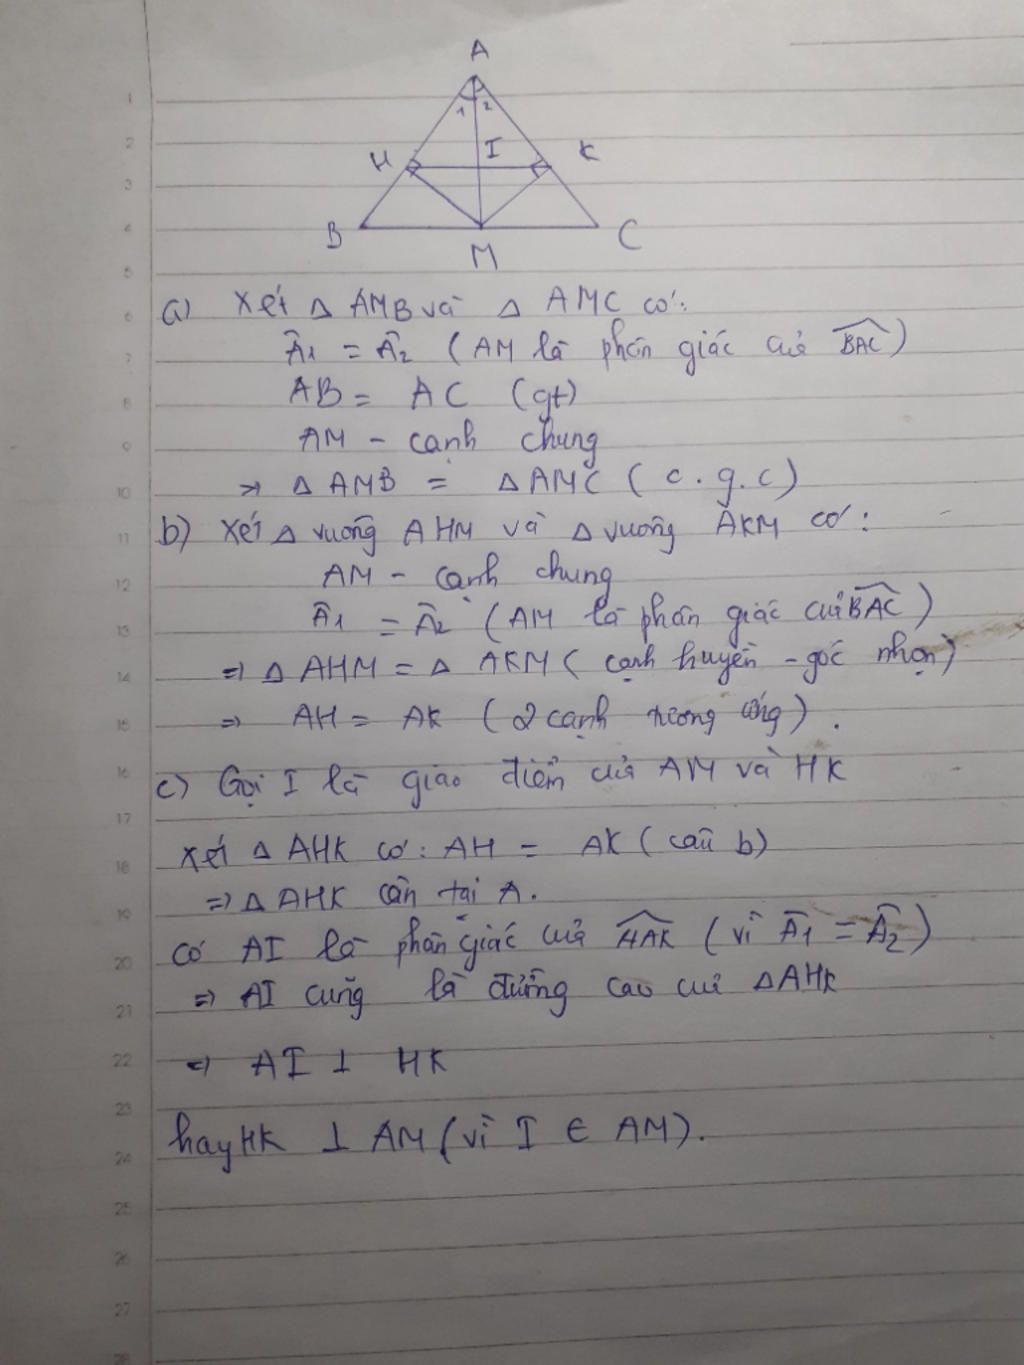 A
1 2
H I K
B M C
a) Xét Δ AMB và Δ AMC có:
Â1 = Â2 (AM là phân giác của BAC)
AB = AC (gt)
AM - cạnh chung
=> Δ AMB = Δ AMC (c.g.c)
b) Xét Δ vuông AHM và Δ vuông AKM có:
AM - cạnh chung
Â1 = Â2 (AM là phân giác của BAC)
=> Δ AHM = Δ AKM (cạnh huyền - góc nhọn)
=> AH = AK (2 cạnh tương ứng).
c) Gọi I là giao điểm của AM và HK
Xét Δ AHK có: AH = AK (câu b)
=> Δ AHK cân tại A.
có AI là phân giác của HAK (vì Â1 = Â2)
=> AI cũng là đường cao củ ΔAHK
=> AI ⊥ HK
hay HK ⊥ AM (vì I ∈ AM).
1
2
3
4
5
6
7
8
9
10
11
12
13
14
15
16
17
18
19
20
21
22
23
24
25
26
27
28